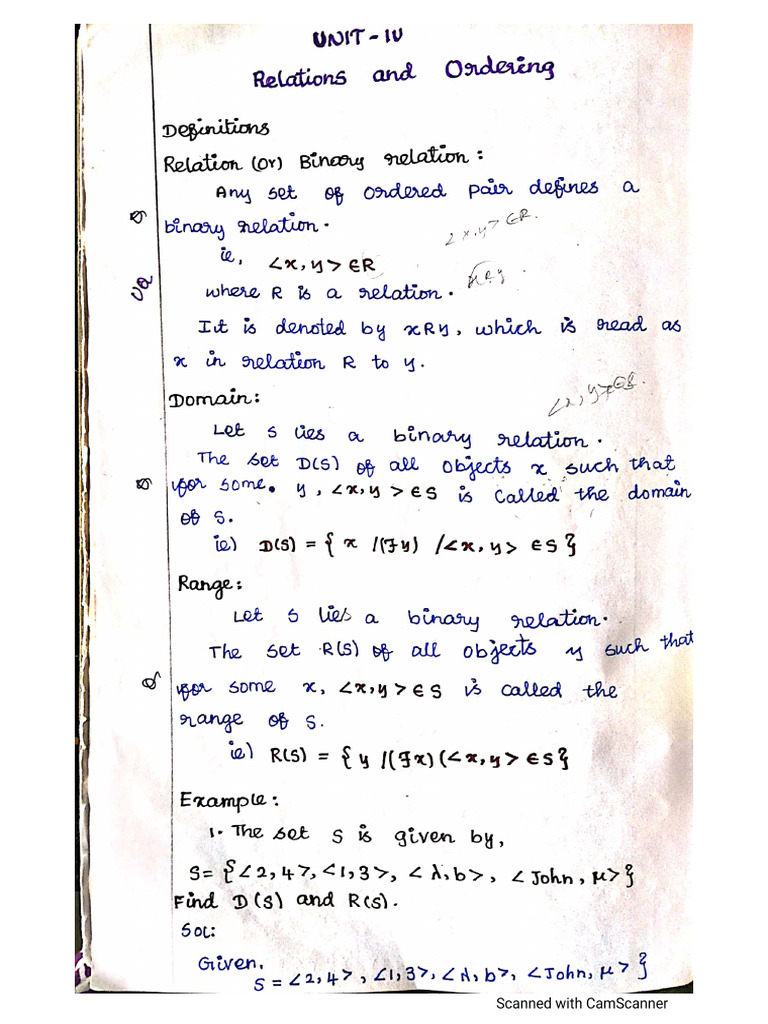 UNIT - IV
Relations and Ordering
Definitions
Relation (or) Binary relation :
Any set of ordered pair defines a
binary relation.
<x,y> ∈R.
ie, <x,y> ∈R
xRy
where R is a relation.
It is denoted by xRy, which is read as
x in relation R to y.
<x,y>∈S.
Domain:
Let S lies a binary relation.
The set D(S) of all objects x such that
for some. y, <x,y> ∈S is called the domain
of S.
ie) D(S) = { x /(∃y) /<x,y> ∈S}
Range:
Let S lies a binary relation.
The set R(S) of all objects y such that
for some x, <x,y> ∈ S is called the
range of S.
ie) R(S) = { y /(∃x)(<x,y> ∈S}
Example:
1. The set S is given by,
S= {<2,4>, <1,3>, <λ,b>, <John, μ>}
Find D(S) and R(S).
Sol:
Given,
S = <2,4>, <1,3>, <λ,b>, <John, μ>}
Scanned with CamScanner